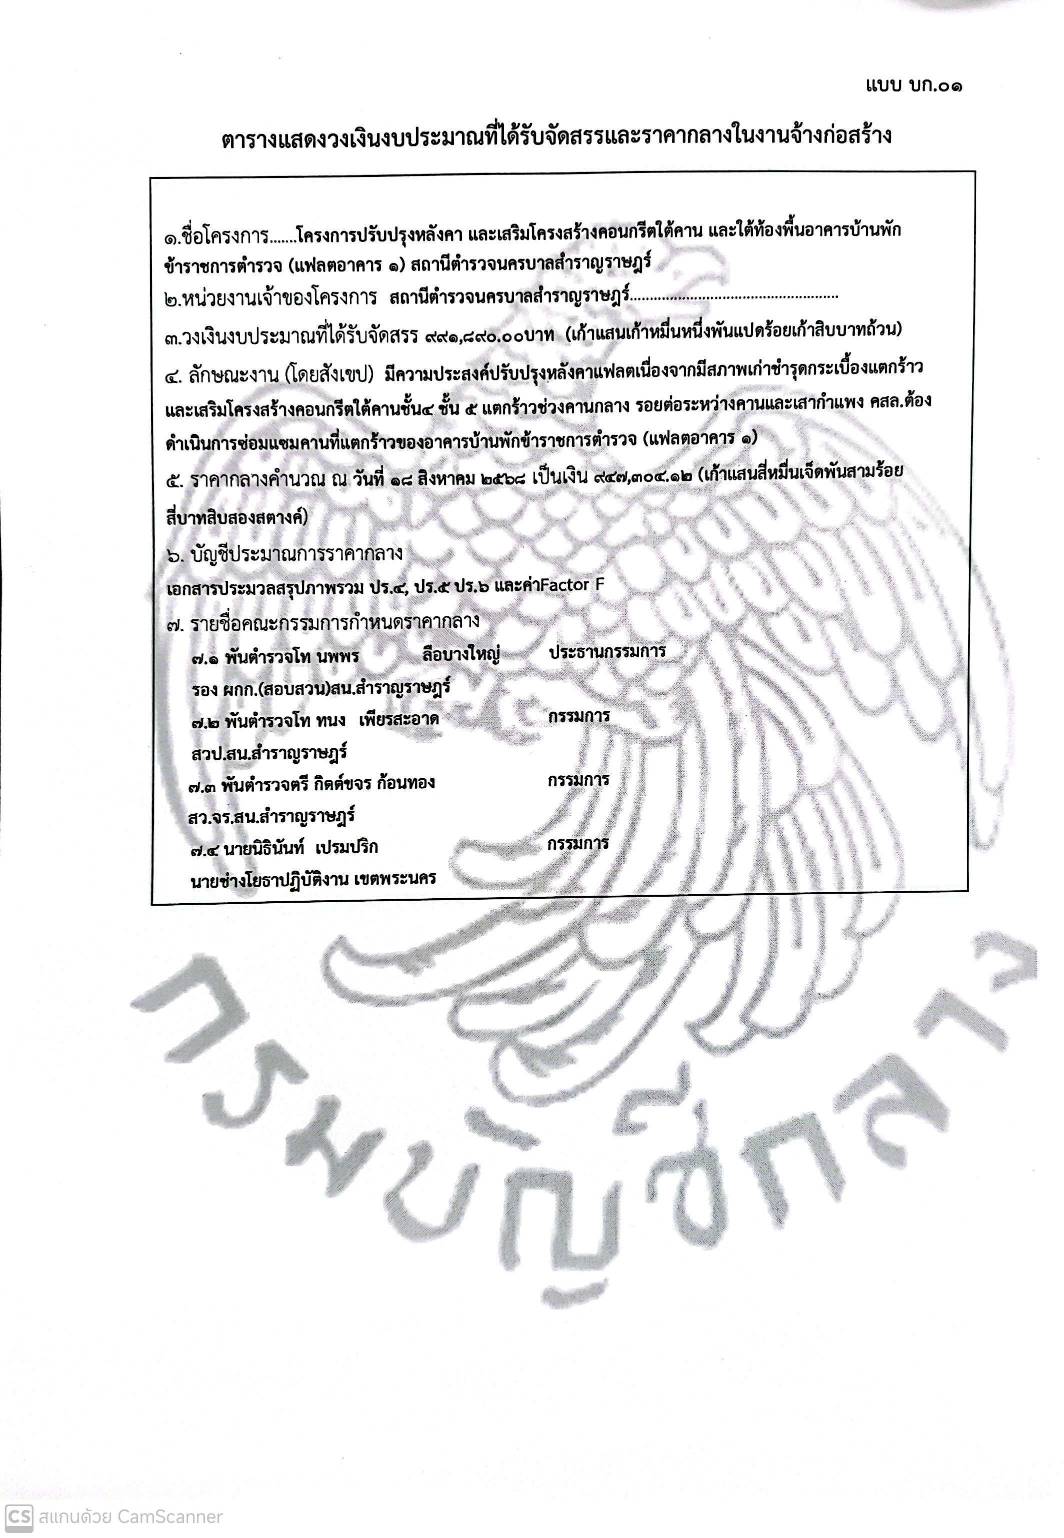 แบบ บก.๐๑
ตารางแสดงวงเงินงบประมาณที่ได้รับจัดสรรและราคากลางในงานจ้างก่อสร้าง
๑.ชื่อโครงการ.......โครงการปรับปรุงหลังคา และเสริมโครงสร้างคอนกรีตใต้คาน และใต้ท้องพื้นอาคารบ้านพัก
ข้าราชการตำรวจ (แฟลตอาคาร ๑) สถานีตำรวจนครบาลสำราญราษฎร์
๒.หน่วยงานเจ้าของโครงการ สถานีตำรวจนครบาลสำราญราษฎร์....................................................
๓.วงเงินงบประมาณที่ได้รับจัดสรร ๙๙๑,๘๙๐.๐๐บาท (เก้าแสนเก้าหมื่นหนึ่งพันแปดร้อยเก้าสิบบาทถ้วน)
๔. ลักษณะงาน (โดยสังเขป) มีความประสงค์ปรับปรุงหลังคาแฟลตเนื่องจากมีสภาพเก่าชำรุดกระเบื้องแตกร้าว
และเสริมโครงสร้างคอนกรีตใต้คานชั้น๔ ชั้น ๕ แตกร้าวช่วงคานกลาง รอยต่อระหว่างคานและเสากำแพง คสล.ต้อง
ดำเนินการซ่อมแซมคานที่แตกร้าวของอาคารบ้านพักข้าราชการตำรวจ (แฟลตอาคาร ๑)
๕. ราคากลางคำนวณ ณ วันที่ ๑๘ สิงหาคม ๒๕๖๘ เป็นเงิน ๙๔๗,๓๐๔.๑๒ (เก้าแสนสี่หมื่นเจ็ดพันสามร้อย
สี่บาทสิบสองสตางค์)
๖. บัญชีประมาณการราคากลาง
เอกสารประมวลสรุปภาพรวม ปร.๔, ปร.๕ ปร.๖ และค่าFactor F
๗. รายชื่อคณะกรรมการกำหนดราคากลาง
๗.๑ พันตำรวจโท นพพร ลือบางใหญ่ ประธานกรรมการ
รอง ผกก.(สอบสวน)สน.สำราญราษฎร์
๗.๒ พันตำรวจโท ทนง เพียรสะอาด กรรมการ
สวป.สน.สำราญราษฎร์
๗.๓ พันตำรวจตรี กิตต์ขจร ก้อนทอง กรรมการ
สว.จร.สน.สำราญราษฎร์
๗.๔ นายนิธินันท์ เปรมปริก กรรมการ
นายช่างโยธาปฏิบัติงาน เขตพระนคร
กรมบัญชีกลาง
CS สแกนด้วย CamScanner